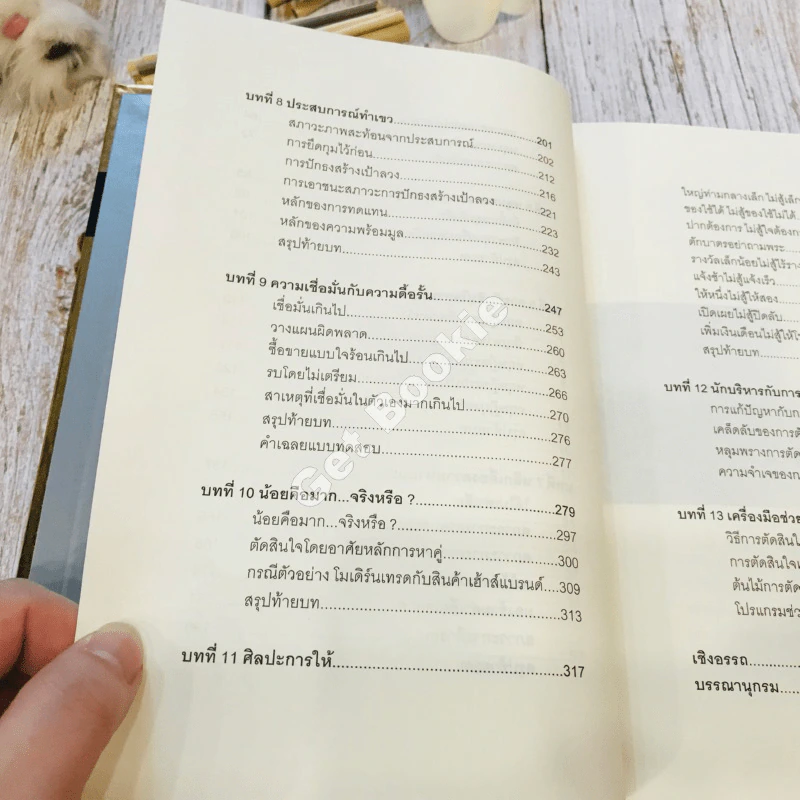 บทที่ 8 ประสบการณ์ทำเขว...201
สภาวะภาพสะท้อนจากประสบการณ์...202
การยึดกุมไว้ก่อน...212
การปักธงสร้างเป้าลวง...216
การเอาชนะสภาวะการปักธงสร้างเป้าลวง...221
หลักของการทดแทน...223
หลักของความพร้อมมูล...232
สรุปท้ายบท...243
บทที่ 9 ความเชื่อมั่นกับความดื้อรั้น...247
เชื่อมั่นเกินไป...253
วางแผนผิดพลาด...260
ซื้อขายแบบใจร้อนเกินไป...263
รบโดยไม่เตรียม...266
สาเหตุที่เชื่อมั่นในตัวเองมากเกินไป...270
สรุปท้ายบท...276
คำเฉลยแบบทดสอบ...277
บทที่ 10 น้อยคือมาก...จริงหรือ ?...279
น้อยคือมาก...จริงหรือ ?...297
ตัดสินใจโดยอาศัยหลักการหาคู่...300
กรณีตัวอย่าง โมเดิร์นเทรดกับสินค้าเฮ้าส์แบรนด์...309
สรุปท้ายบท...313
บทที่ 11 ศิลปะการให้...317
ใหญ่ท่ามกลางเล็ก ไม่สู้เล็ก
ของใช้ได้ ไม่สู้ของใช้ไม่ได้
ปากต้องการ ไม่สู้ใจต้องกา
ตักบาตรอย่าถามพระ
รางวัลเล็กน้อยไม่สู้ไร้ราง
แจ้งช้าไม่สู้แจ้งเร็ว
ให้หนึ่งไม่สู้ให้สอง
เปิดเผยไม่สู้ปิดลับ
เพิ่มเงินเดือนไม่สู้ให้
สรุปท้ายบท
บทที่ 12 นักบริหารกับการ
การแก้ปัญหากับก
เคล็ดลับของการตั
หลุมพรางการตัด
ความจำเจของก
บทที่ 13 เครื่องมือช่วย
วิธีการตัดสินใ
การตัดสินใจ
ต้นไม้การตัด
โปรแกรมช่ว
เชิงอรรถ
บรรณานุกรม
Get Bookie